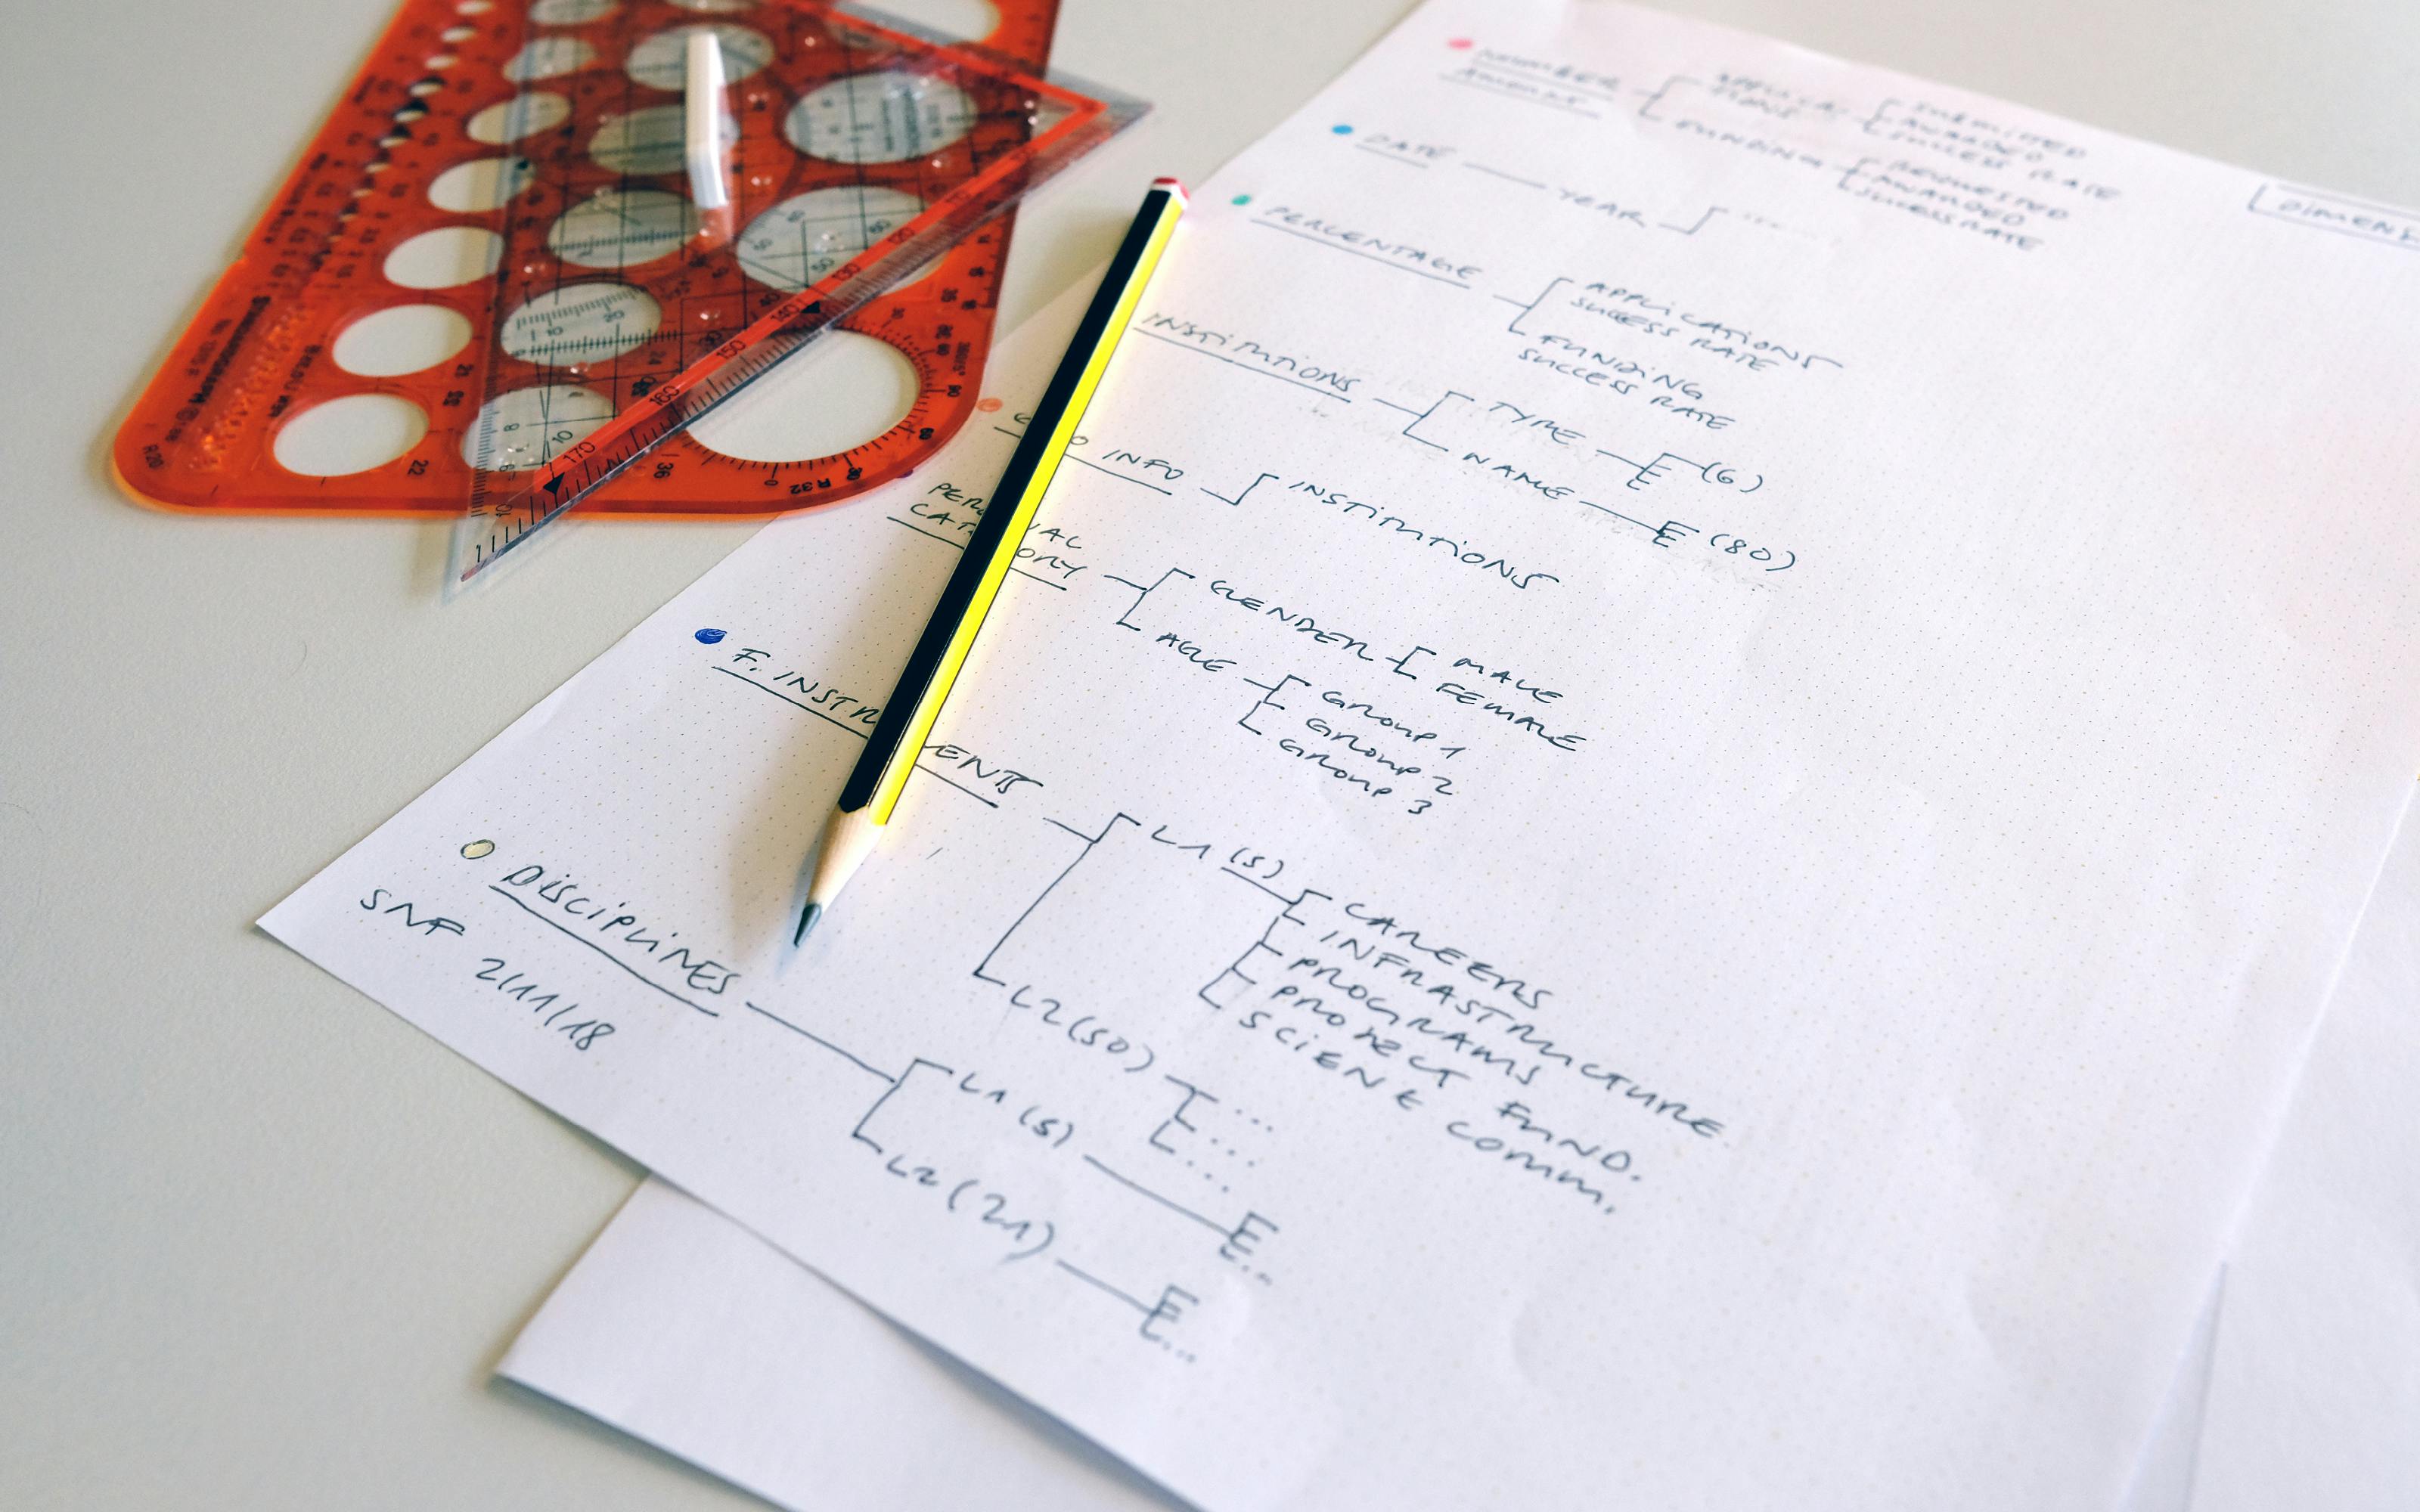 NUMBER
AMOUNT
APPLICA-
TIONS
SUBMITTED
AWARDED
SUCCESS RATE
FUNDING
REQUESTED
AWARDED
SUCCESS RATE
DATE
YEAR
...
PERCENTAGE
APPLICATIONS
SUCCESS RATE
FUNDING
SUCCESS RATE
INSTITUTIONS
TYPE (6)
NAME (80)
INFO
INSTITUTIONS
GENDER
MALE
FEMALE
AGE
GROUP 1
GROUP 2
GROUP 3
L1 (5)
CAREERS
INFRASTRUCTURE
PROGRAMS
PROJECT FUND.
SCIENCE COMM.
L2 (50)
...
...
...
DISCIPLINES
L1 (5)
...
L2 (21)
...
SNF
2/11/18